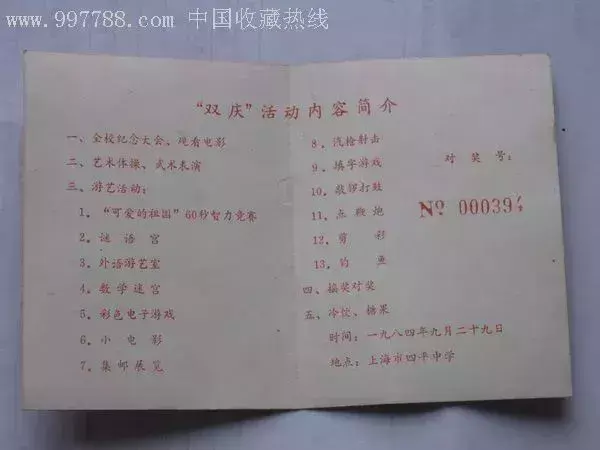 www.997788.com 中国收藏热线
“双庆”活动内容简介
一、全校纪念大会、观看电影
二、艺术体操、武术表演
三、游艺活动：
1．“可爱的祖国”60秒智力竞赛
2．谜语宫
3．外语游艺室
4．数学迷宫
5．彩色电子游戏
6．小电影
7．集邮展览
8．汽枪射击
9．填字游戏
10．敲锣打鼓
11．点鞭炮
12．剪彩
13．钓鱼
四、摇奖对奖
五、冷饮、糖果
时间：一九八四年九月二十九日
地点：上海市四平中学
对奖号：
№ 000394